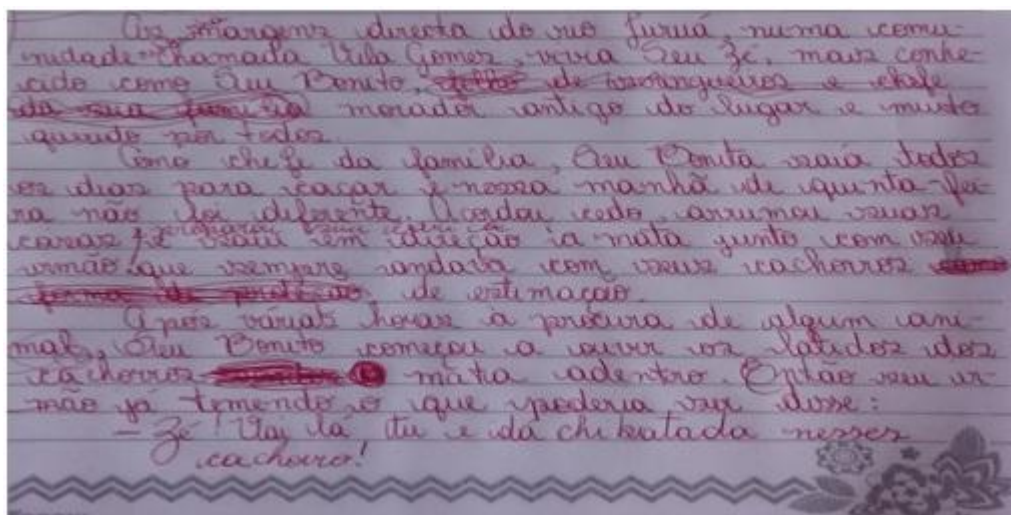 As margens directa do rio Juruá, numa comu-
nidade chamada Vila Gomes, vivia Seu Zé, mais conhe-
cido como Seu Bonito, filho de seringueiros e chefe
da sua família morador antigo do lugar e muito
querido por todos.
Como chefe da família, Seu Bonito saia todos
os dias para caçar e nessa manhã de quinta-fei-
ra não foi diferente. Acordou cedo, arrumou suas
coisas, e saiu em direção a mata junto com seu
irmão que sempre andava com seus cachorros
de estimação.
Após várias horas à procura de algum ani-
mal, Seu Bonito começou a ouvir os latidos dos
cachorros mata adentro. Então seu ir-
mão já temendo o que poderia ser disse:
- Zé! Vai lá tu e dá chibatada nesses
cachorro!